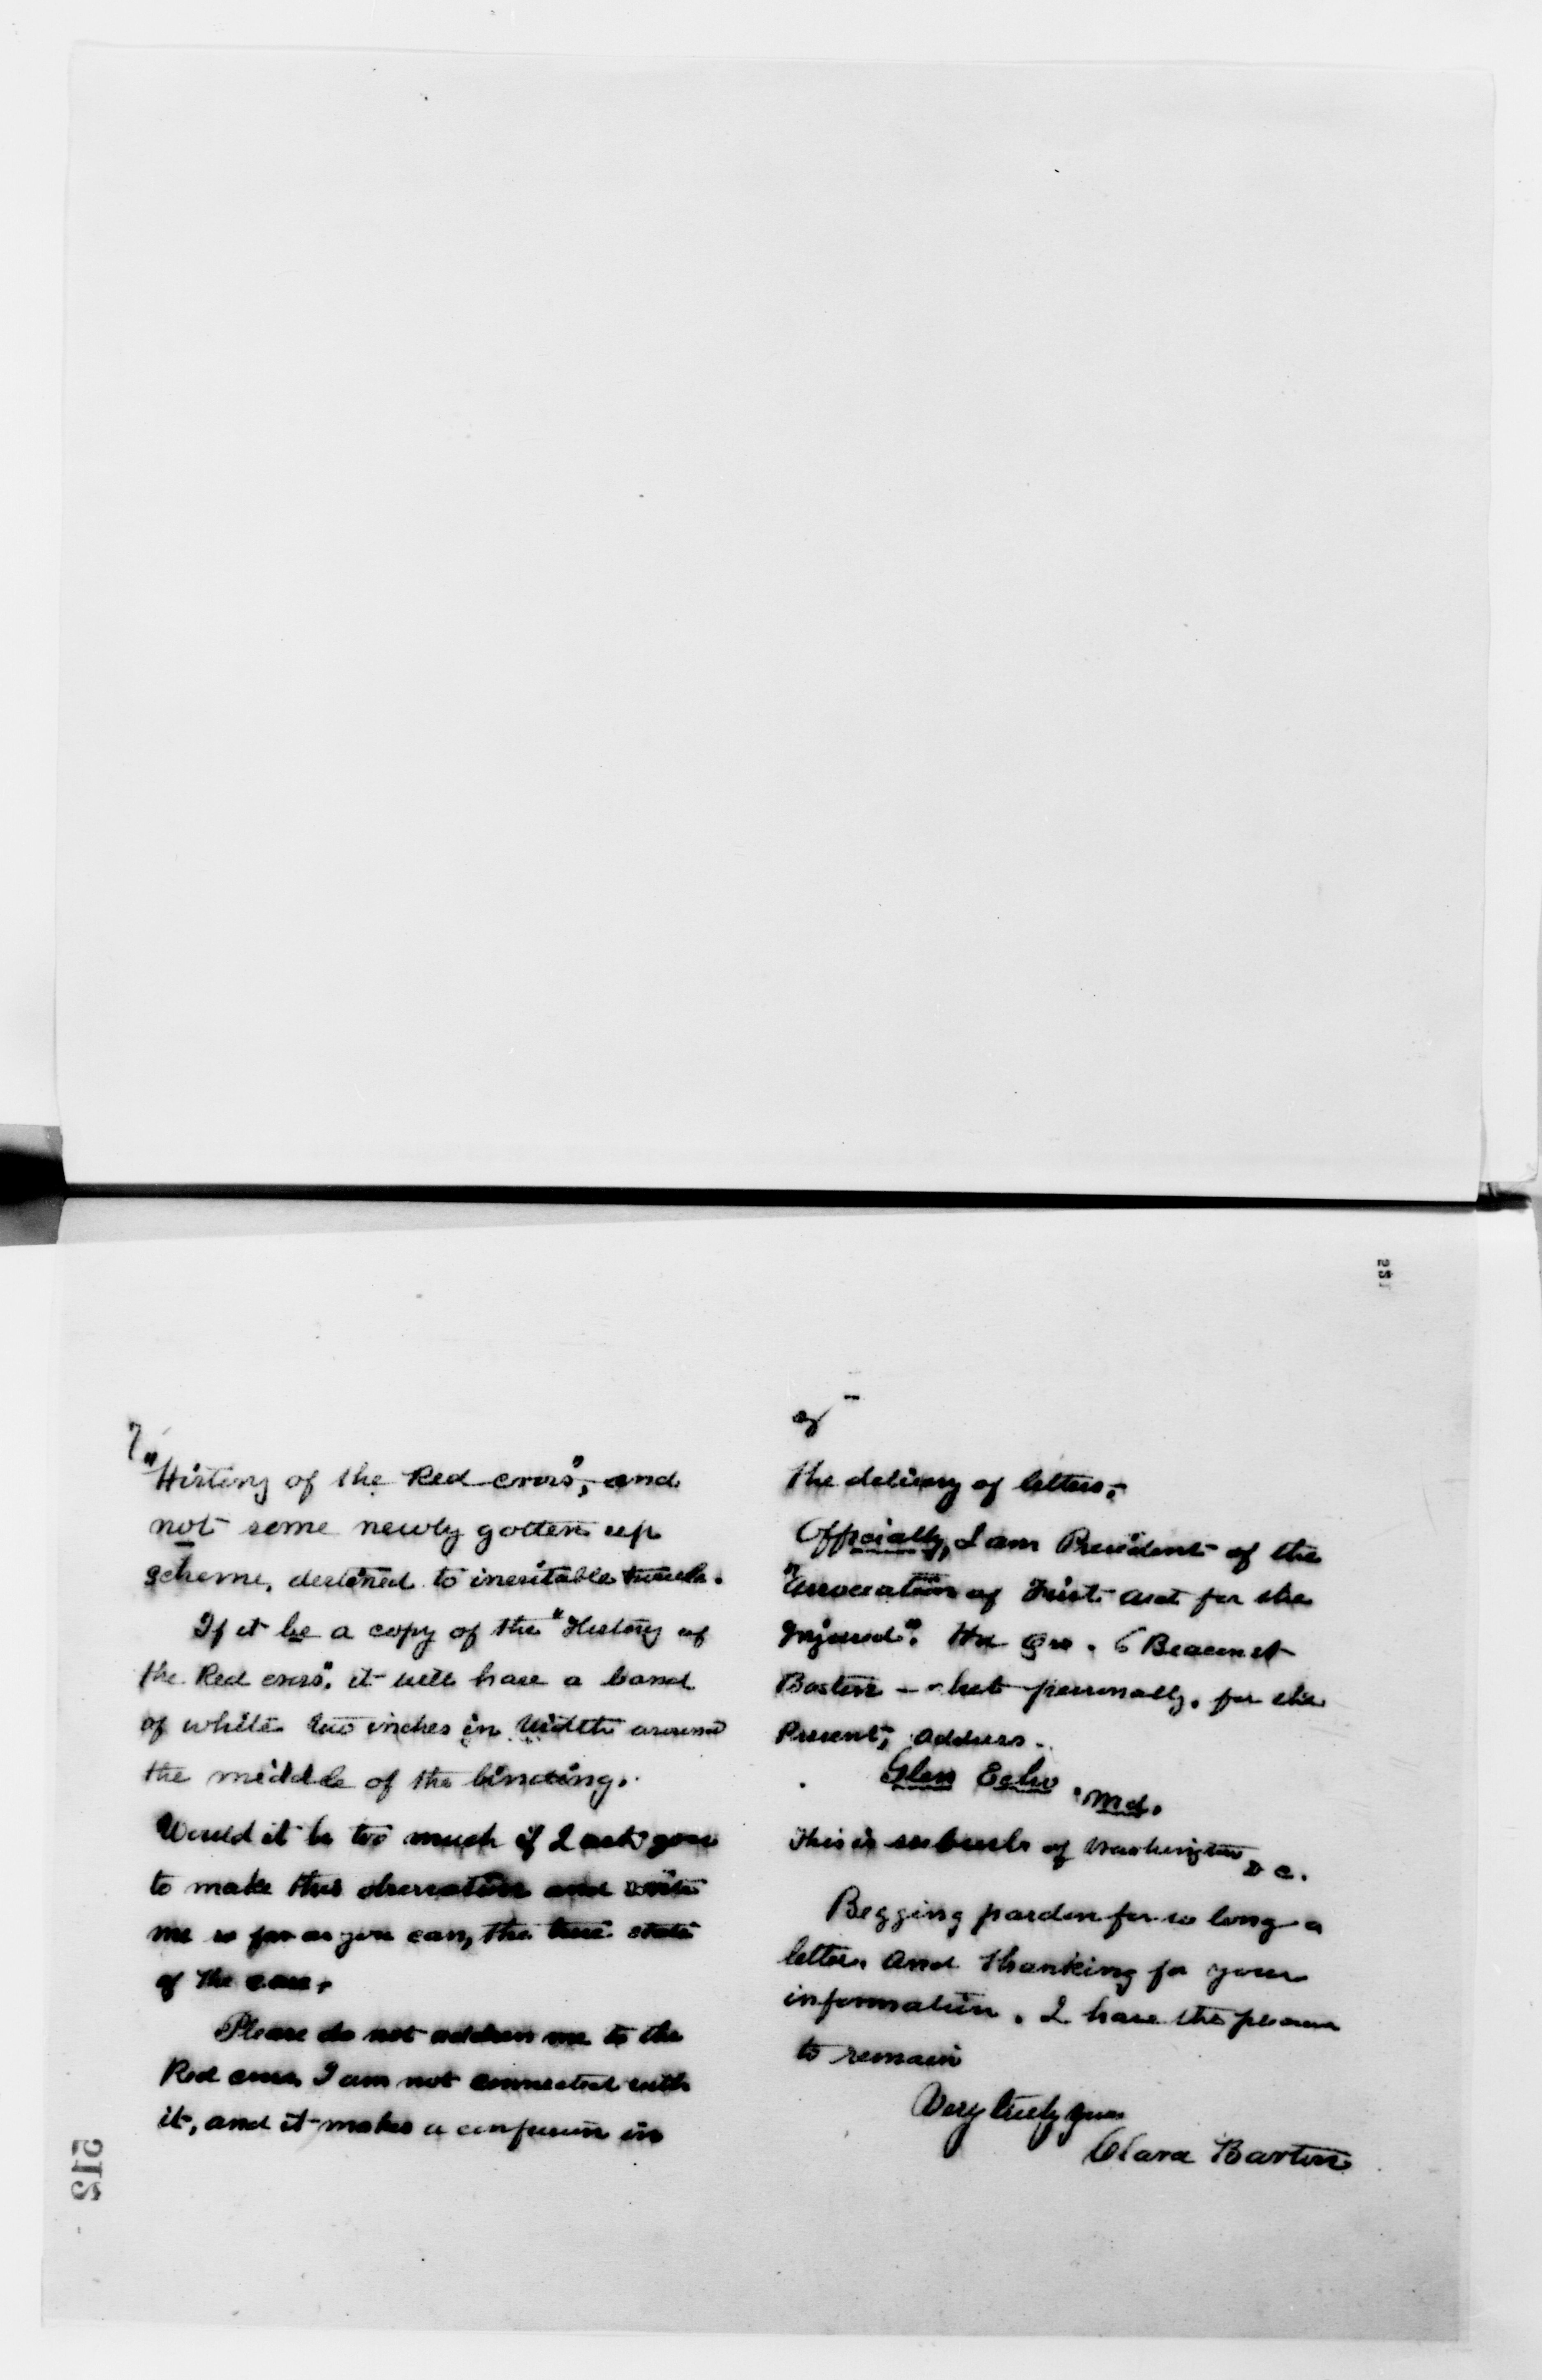 7
"History of the Red cross", and
not some newly gotten up
scheme, destined to inevitable
If it be a copy of the "History of
the Red cross", it will have a band
of white two inches in width around
the middle of the binding.
Would it be too much if I ask you
to make this observation and write
me so far as you can, the true state
of the case,
Please do not address me to the
Red cross I am not connected with
it, and it makes a confusion in
251
the delivery of letters,
Officially, I am President of the
"Association of First aid for the
Injured". Hd Qrs. 6 Beacon st
Boston - but personally, for the
Present, address -
Glen Echo, Md.
This is suburb of Washington D C.
Begging pardon for so long a
letter. And thanking for your
information. I have the pleasure
to remain
Very truly yours
Clara Barton
512